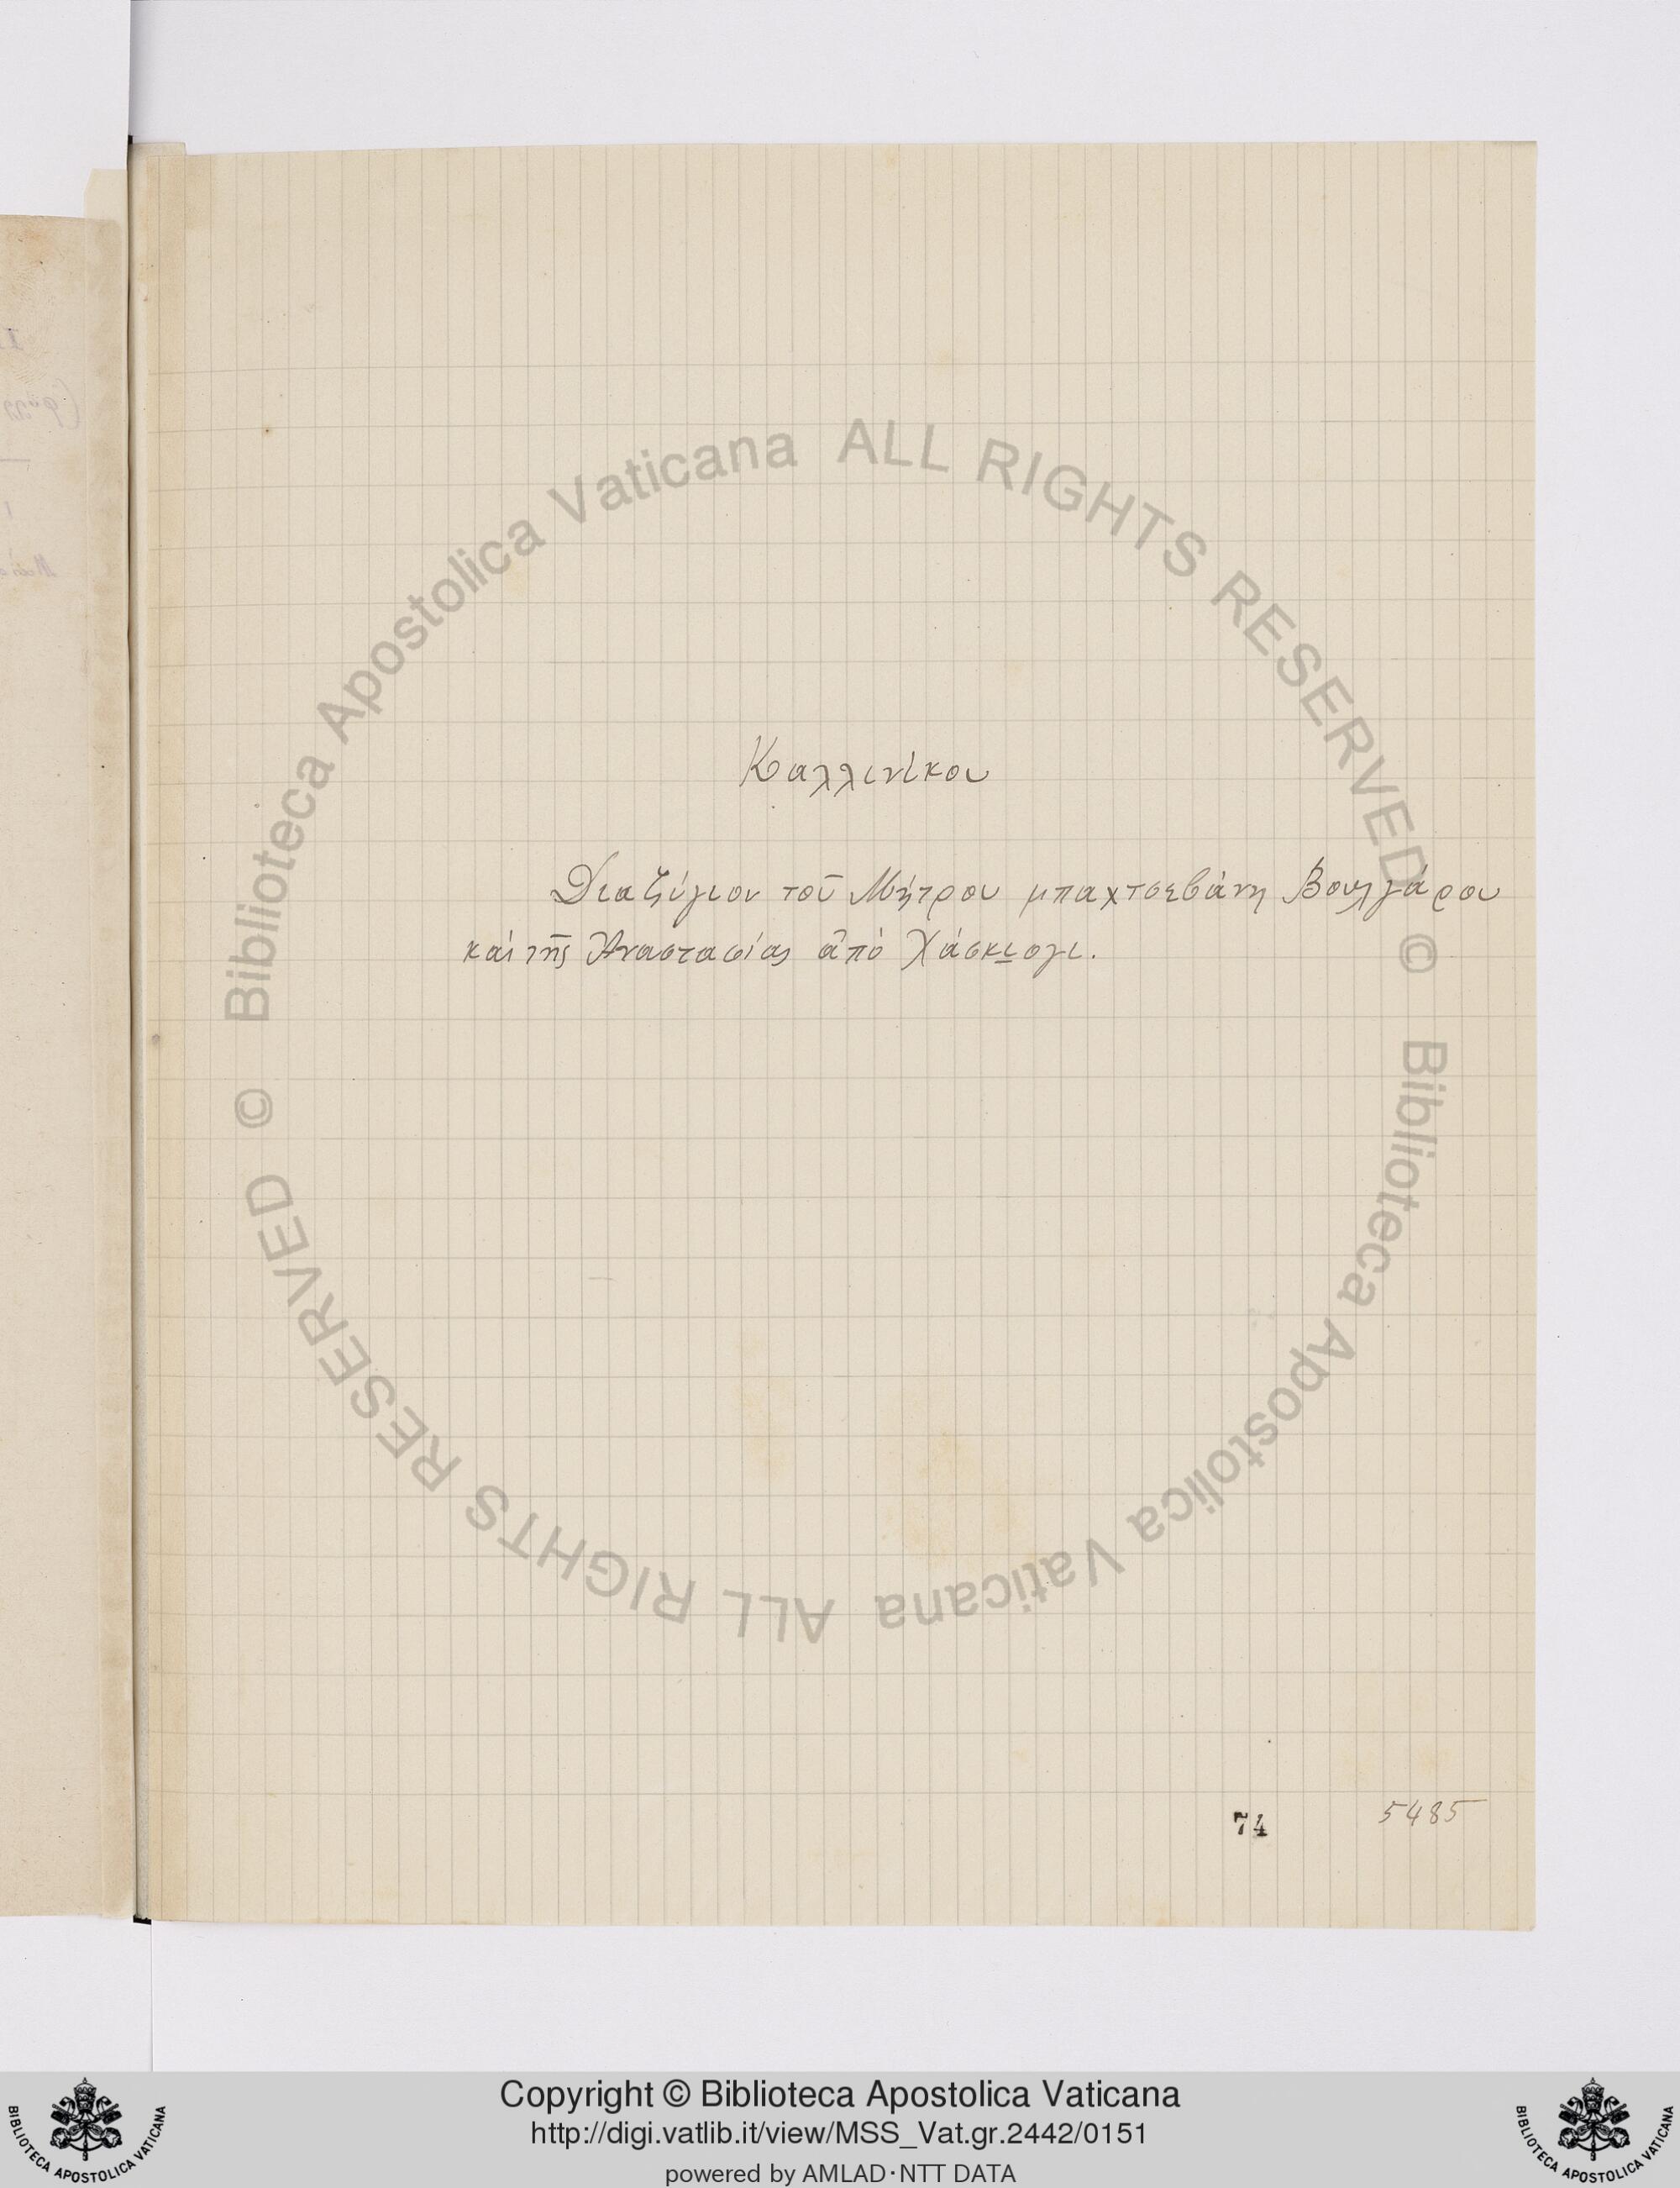 Καλλινίκου
Διαζύγιον τοῦ Μήτρου μπαχτσεβάνη Βουλγάρου
καὶ τῆς Ἀναστασίας ἀπὸ Χάσκιογι.
74
5485
Biblioteca Apostolica Vaticana ALL RIGHTS RESERVED ©
Biblioteca Apostolica Vaticana ALL RIGHTS RESERVED ©
Copyright © Biblioteca Apostolica Vaticana
http://digi.vatlib.it/view/MSS_Vat.gr.2442/0151
powered by AMLAD·NTT DATA
BIBLIOTECA APOSTOLICA VATICANA
BIBLIOTECA APOSTOLICA VATICANA